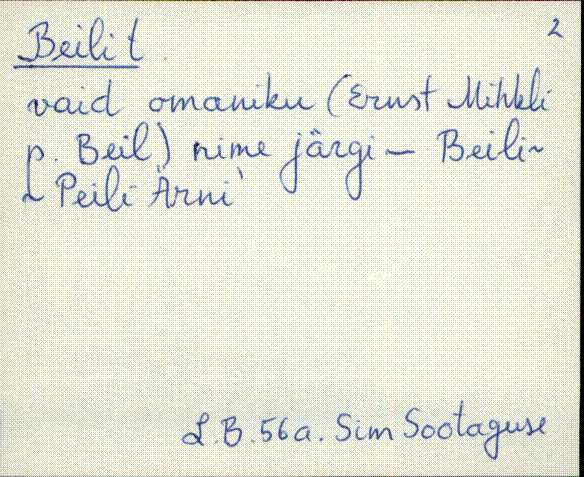 2
Beili t.
vaid omaniku (Ernst Mihkli
p. Beil) nime järgi – Beili ~
~ Peili Ärni
L.B. 56a. Sim Sootaguse